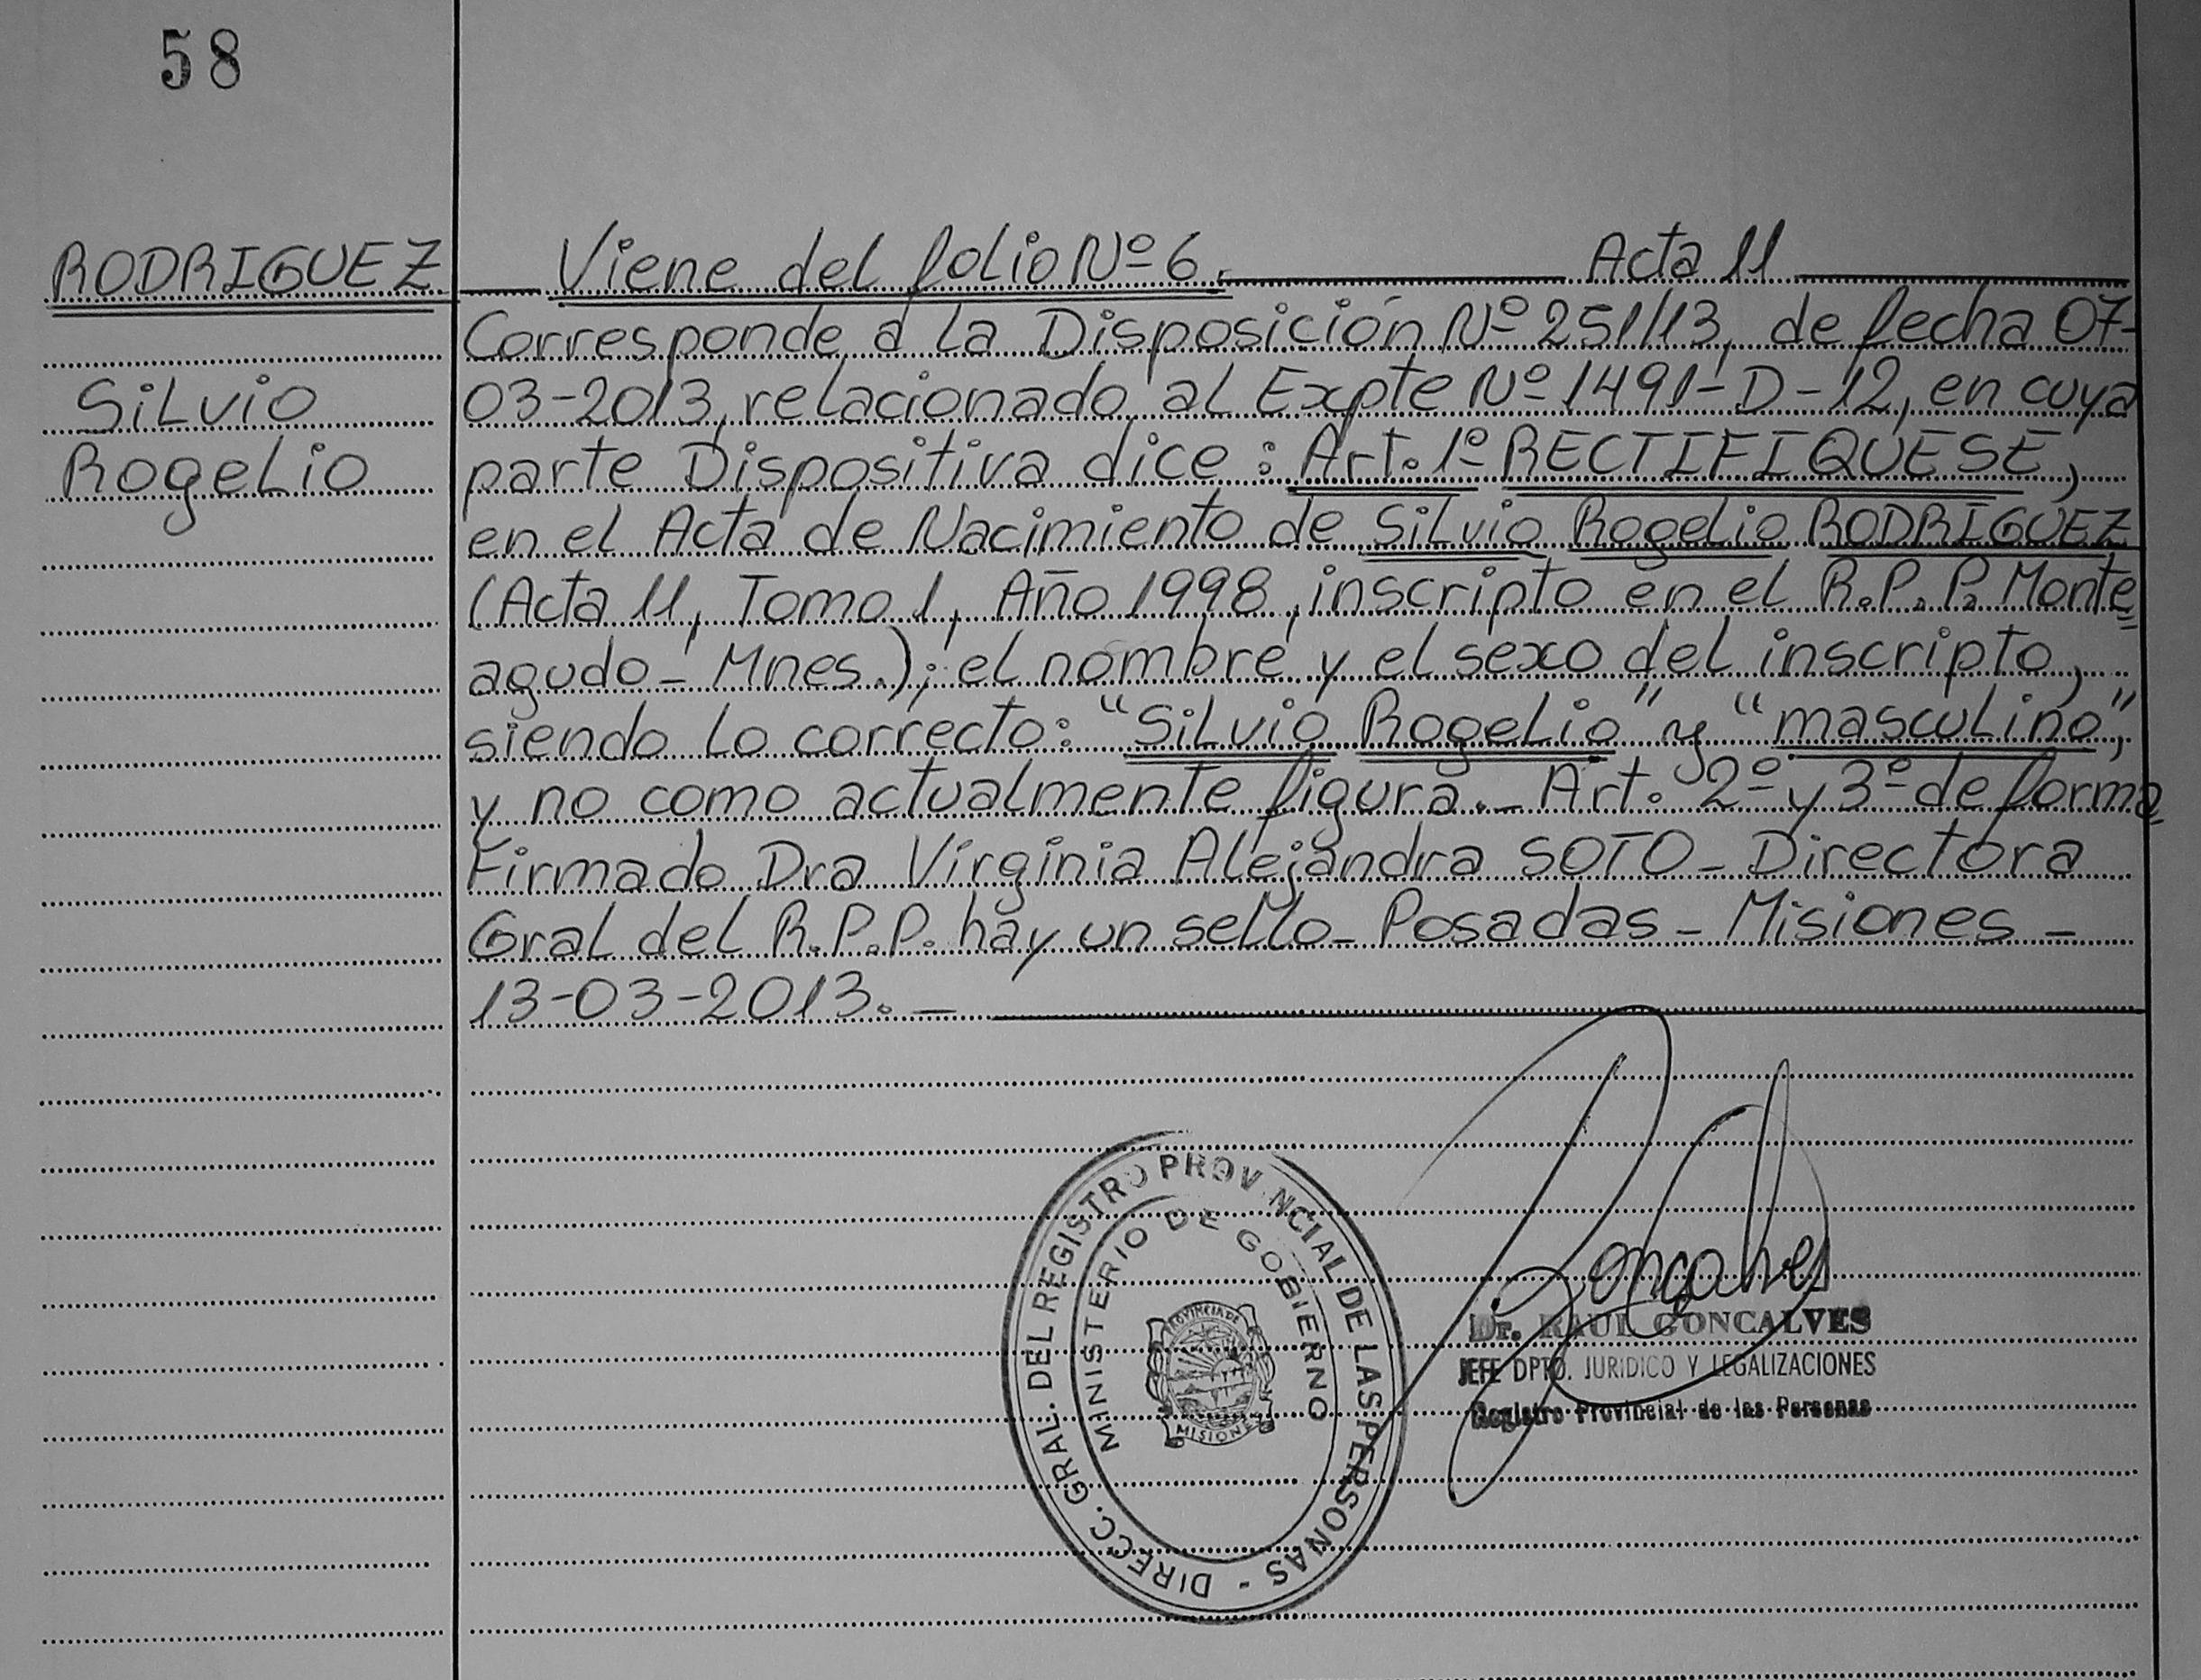 58
RODRIGUEZ
Silvio
Rogelio
Viene del folio Nº 6. Acta 11
Corresponde a la Disposición Nº 251/13, de fecha 07-
03-2013, relacionado al Expte Nº 1491-D-12, en cuya
parte Dispositiva dice: Art. 1º RECTIFIQUESE,
en el Acta de Nacimiento de Silvio Rogelio RODRIGUEZ
(Acta 11, Tomo 1, Año 1998, inscripto en el R.P.P. Monte=
agudo - Mnes.); el nombre y el sexo del inscripto,
siendo lo correcto: "Silvio Rogelio" y "masculino",
y no como actualmente figura.- Art. 2º y 3º de forma
Firmado Dra Virginia Alejandra SOTO - Directora
Gral del R.P.P. hay un sello - Posadas - Misiones -
13-03-2013. -
DIRECC. GRAL. DEL REGISTRO PROVINCIAL DE LAS PERSONAS -
MINISTERIO DE GOBIERNO
PROVINCIA DE
MISIONES
Goncalves
Dr. RAUL GONCALVES
JEFE DPTO. JURIDICO Y LEGALIZACIONES
Registro Provincial de las Personas